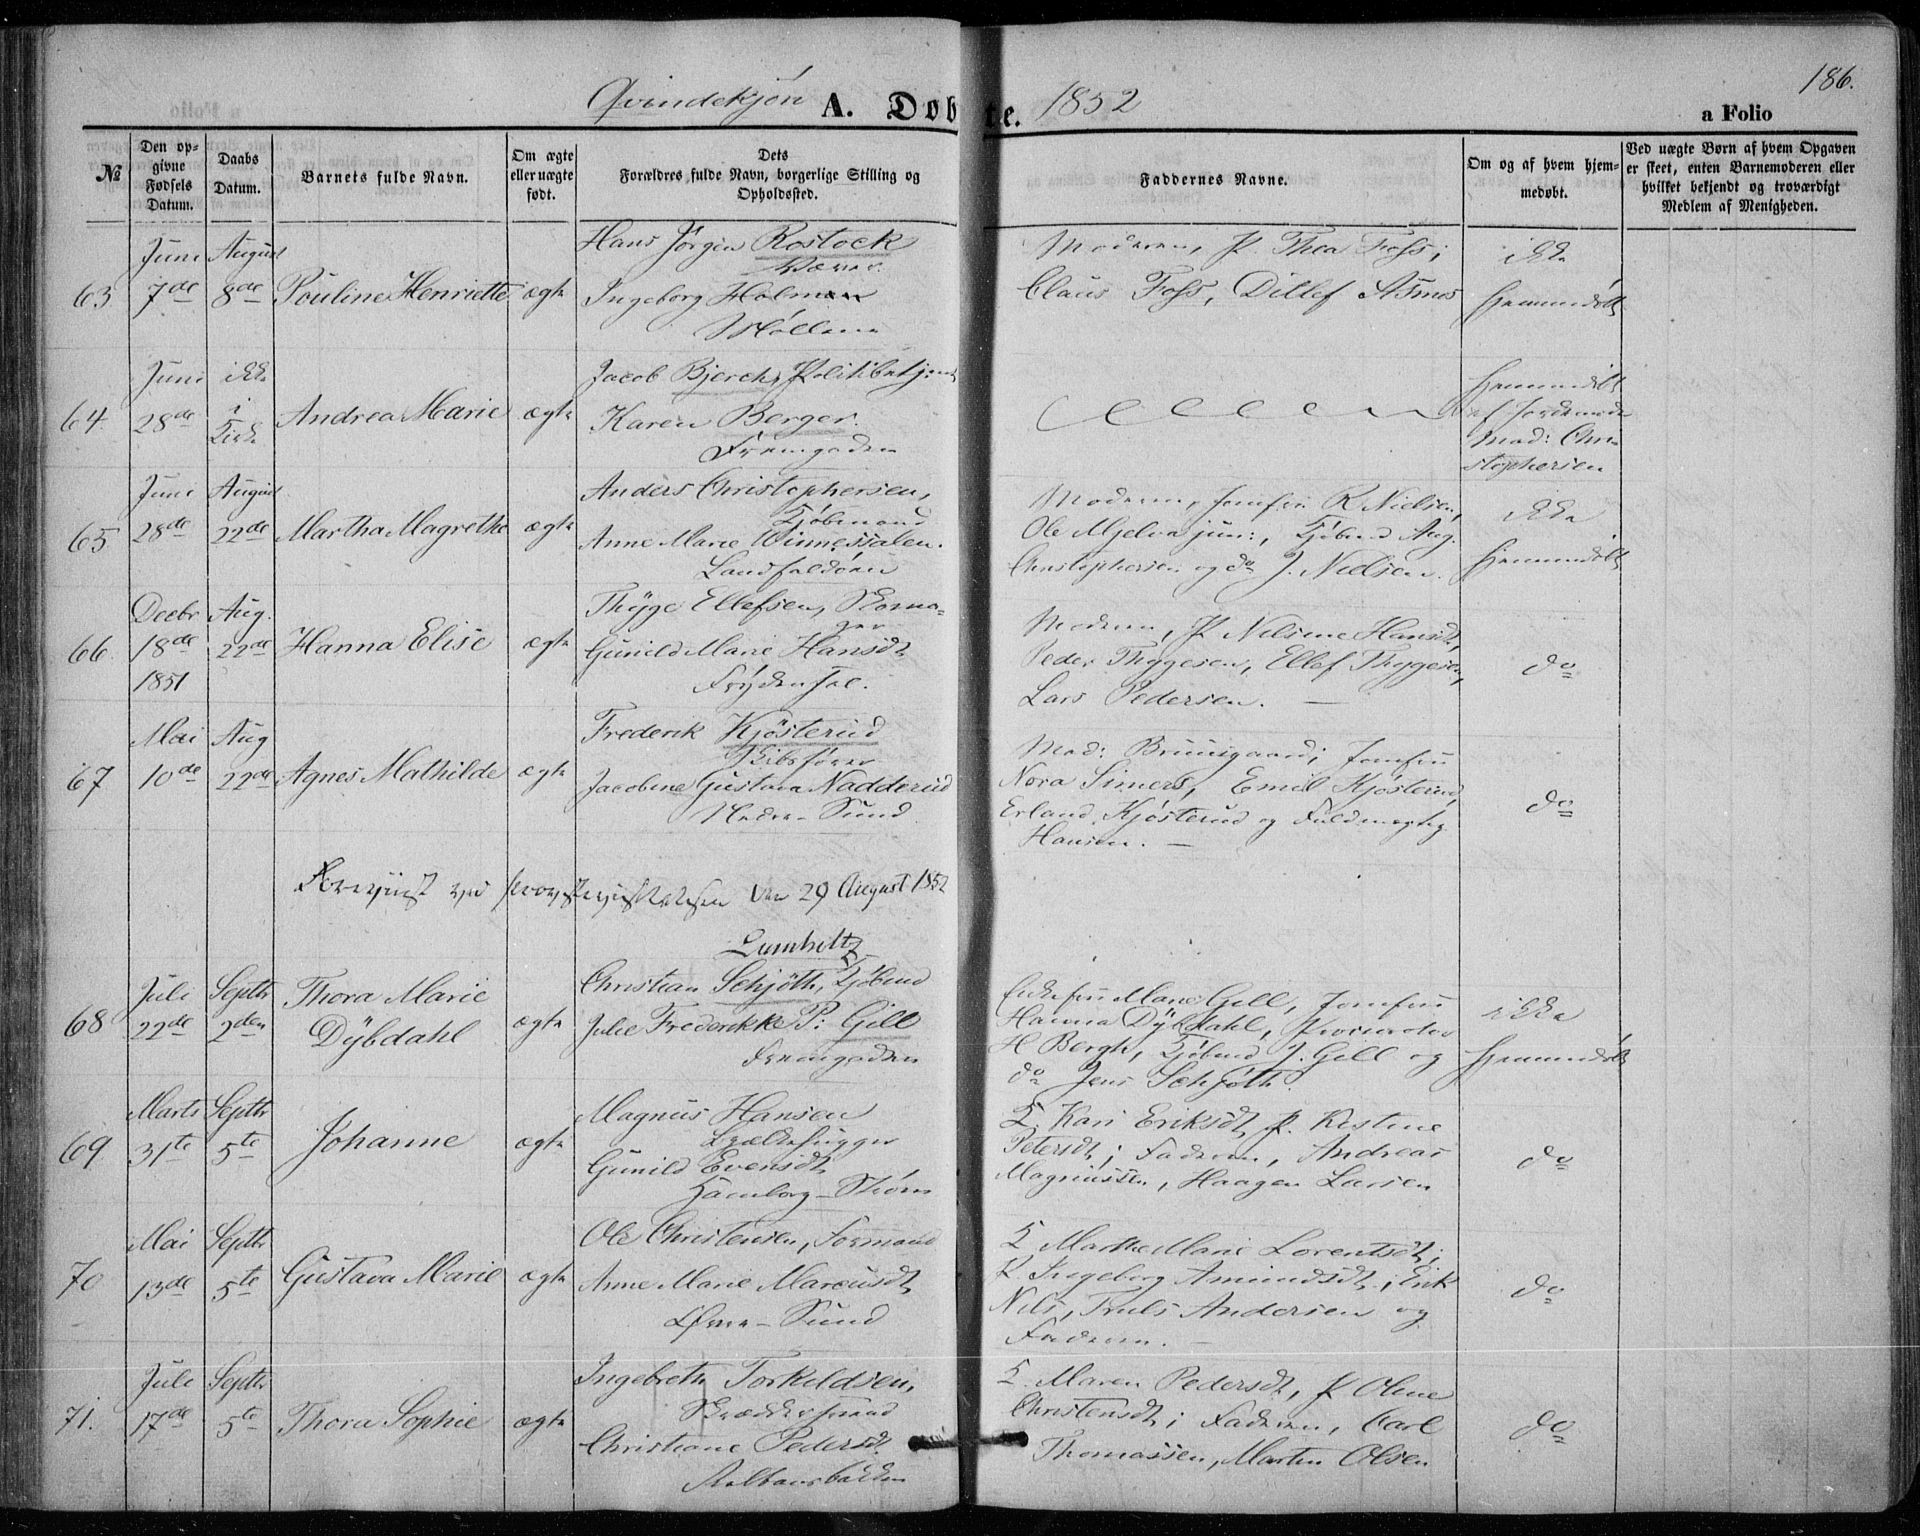 186.
Qvindekjøn A. Døbte. 1852 a Folio
№
Den opgivne Fødsels Datum.
Daabs Datum.
Barnets fulde Navn.
Om ægte eller uægte født.
Dets Forældres fulde Navn, borgerlige Stilling og Opholdssted.
Faddernes Navne.
Om og af hvem hjemmedøbt.
Ved uægte Børn af hvem Opgaven er skeet, enten Barnemoderen eller hvilket bekjendt og troværdigt Medlem af Menigheden.
63. Juni 7de August 8de Pouline Henriette ægte
Hans Jørgen Rostock
Væver
Ingeborg Holm
Møllene
Moderen, P. Thea Foss;
Claus Foss, Ditlef Asmos
ikke
hjemmedøbt
64. Juni 28de ikke i Kirke Andrea Marie ægte
Jacob Bjerch, Politibetjent
Karen Berger.
Fremgaden
hjemmedøbt
af Jordemoder
Mad: Chri
stophersen
65 Juni 28de August 22de Martha Magrethe ægte
Anders Christophersen,
Kjøbmand
Anne Marie Winnessalen.
Landfaldøen
Moderen, Jomfru R. Nielsen,
Ole Mjelva jun:, Kjøbmd Aug.
Christophersen og do J. Nielsen.
ikke
hjemmedøbt
66. Decbr 18de 1851 Aug. 22de Hanna Elise ægte
Thyge Ellefsen, Skoma-
ger
Gunild Marie Hansdt
Frydenhal.
Moderen, P. Nilsine Hansdt,
Peder Thygesen, Ellef Thygesen,
Lars Pedersen. —
do
67 Mai 10de Aug 22de Agnes Mathilde ægte
Frederik Kjøsterud
Skibsfører
Jacobine Gustava Nadderud
Nedre-Sund.
Mad: Bruusgaard; Jomfru
Nora Simers, Emil Kjøsterud,
Erland Kjøsterud og Fuldmægtig
Hansen. —
do
Foreviist ved Provstevisitatsen den 29 August 1852
Lumholtz
68 Juli 22de Septbr 2den Thora Marie Dybdahl ægte
Christian Schjøth, Kjøbmd
Julie Frederikke P: Gill
Fremgaden
Enkefru Marie Gill, Jomfru
Hanna Dybdahl, Procurator
H Bergh, Kjøbmd J. Gill og
do Jens Schjøth.
ikke
hjemmedøbt
69. Marts 31te Septbr 5te Johanne ægte
Magnus Hansen
Bjælkehugger
Gunild Evensdt
Hamborg-Strøm
K Kari Eriksdt, P. Kirstine
Petersdt; Faderen, Andreas
Magnussen, Haagen Larsen
do
70 Mai 13de Septbr 5te Gustava Marie ægte
Ole Christensen, Formand
Anne Marie Marcusdt
Øvre-Sund
K Marthe Marie Lorentsdt;
P. Ingeborg Amundsdt; Erik
Nils, Truls Andersen og
Faderen. —
do
71. Juli 17de Septbr 5te Thora Sophie ægte
Ingebreth Torkeldsen,
Skræddersvend
Christiane Pedersdt
K. Maren Pedersdt, P Oline
Christensdt; Faderen, Carl
Thomassen, Martin Olsen
do